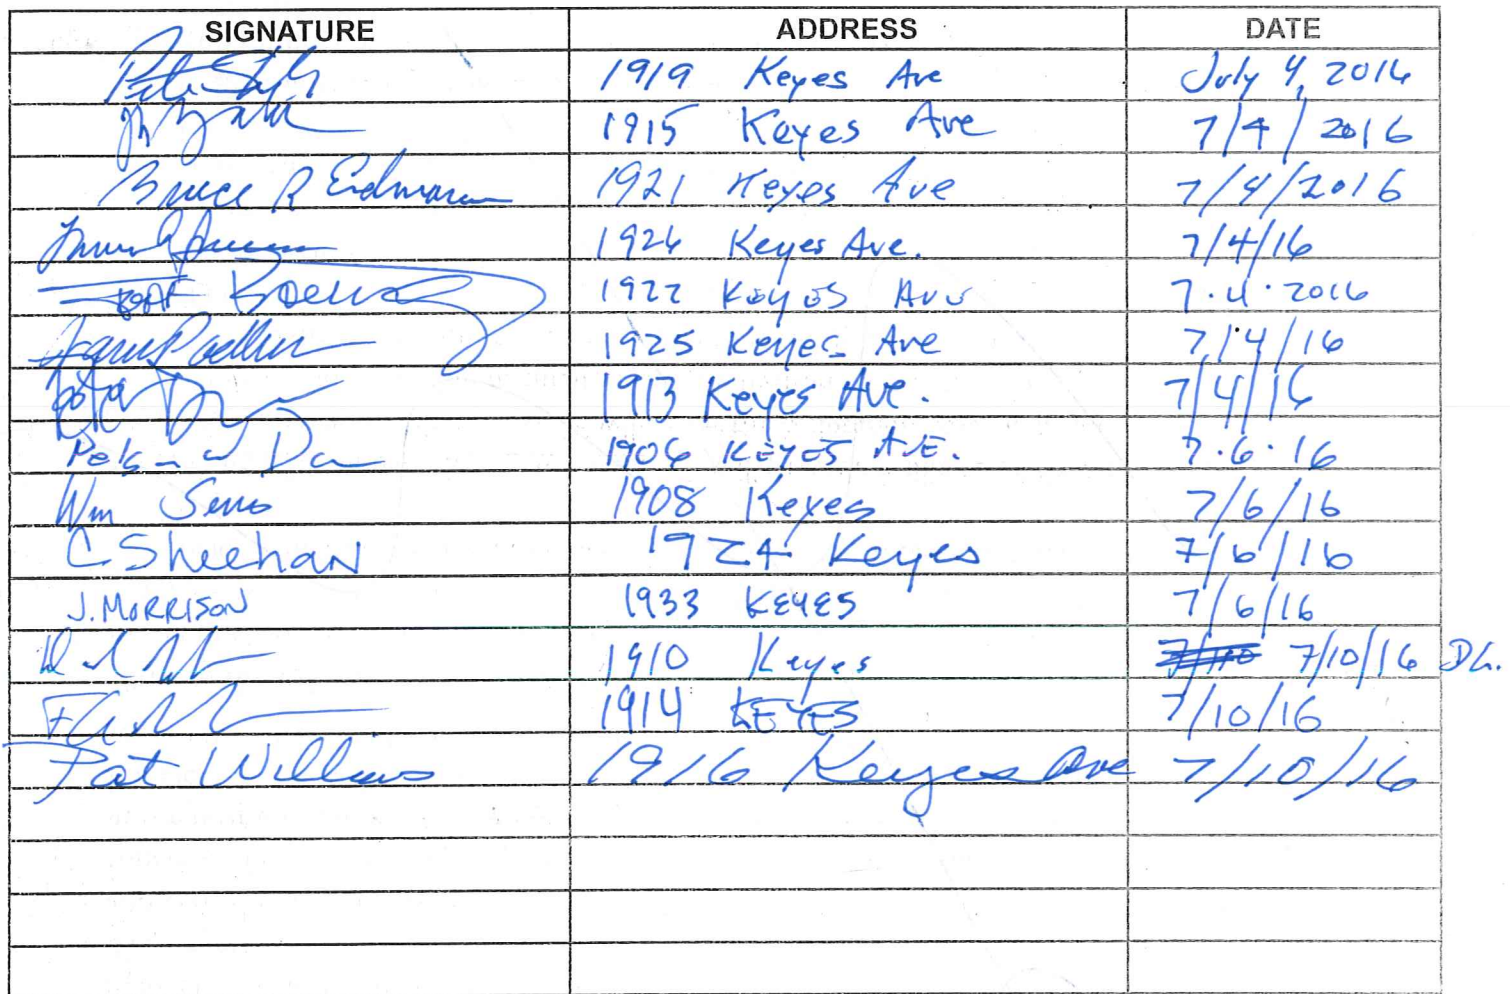 SIGNATURE ADDRESS DATE
1919 Keyes Ave July 4, 2016
1915 Keyes Ave 7/4/2016
Bruce R Erdmann 1921 Keyes Ave 7/4/2016
1926 Keyes Ave. 7/4/16
1922 Keyes Ave 7.4.2016
1925 Keyes Ave 7/4/16
1913 Keyes Ave. 7/4/16
1906 KEYES AVE. 7.6.16
Wm 1908 Keyes 7/6/16
C. Sheehan 1924 Keyes 7/6/16
J. MORRISON 1933 KEYES 7/6/16
1910 Keyes 7/10/16 DL.
1914 KEYES 7/10/16
Pat Williams 1916 Keyes Ave 7/10/16